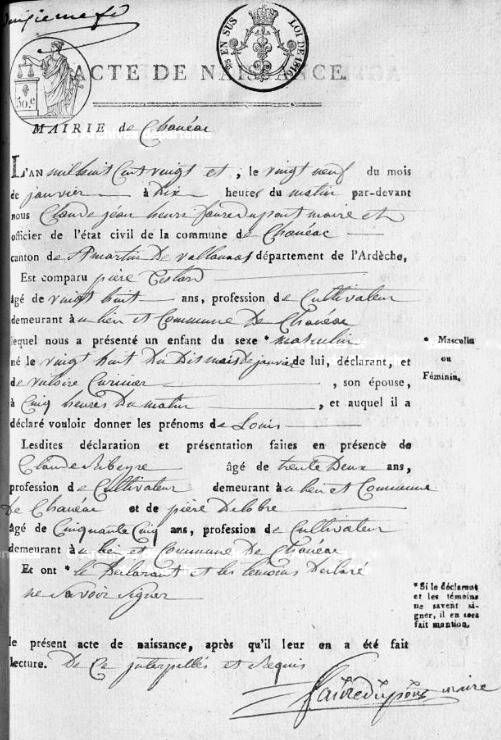 30.c
EN SUS
LOI DE 1816
ACTE DE NAISSANCE.
MAIRIE de Chanéac
L'AN mil huit Cent vingt et , le vingt neuf du mois
de janvier à dix heures du matin par-devant
nous Claude jean henri faure dupont maire et
officier de l'état civil de la commune de Chanéac
canton de St martin De vallamas département de l'Ardèche,
Est comparu pière Testard
âgé de vingt huit ans, profession de Cultivateur
demeurant à u lieu et Commune De Chanéac
lequel nous a présenté un enfant du sexe * masculin
* Masculin
ou
Féminin.
né le vingt huit Du Dis mois De janvier de lui, déclarant, et
de , son épouse,
à Cinq heures Du matin , et auquel il a
déclaré vouloir donner les prénoms de Louis
Lesdites déclaration et présentation faites en présence de
Claude ribeyre âgé de trente Deux ans,
profession de Cultivateur demeurant à u lieu et Commune
De Chanéac et de pière Delobre
âgé de Cinquante Cinq ans, profession de Cultivateur
demeurant à u lieu et Commune De Chanéac
Et ont * le Déclarant et les temoins Declaré
ne Savoir Signer
* Si le déclarant
et les témoins
ne savent si-
gner, il en sera
fait mention.
le présent acte de naissance, après qu'il leur en a été fait
lecture. De Ce jnterpellés et Requis
faure dupont maire